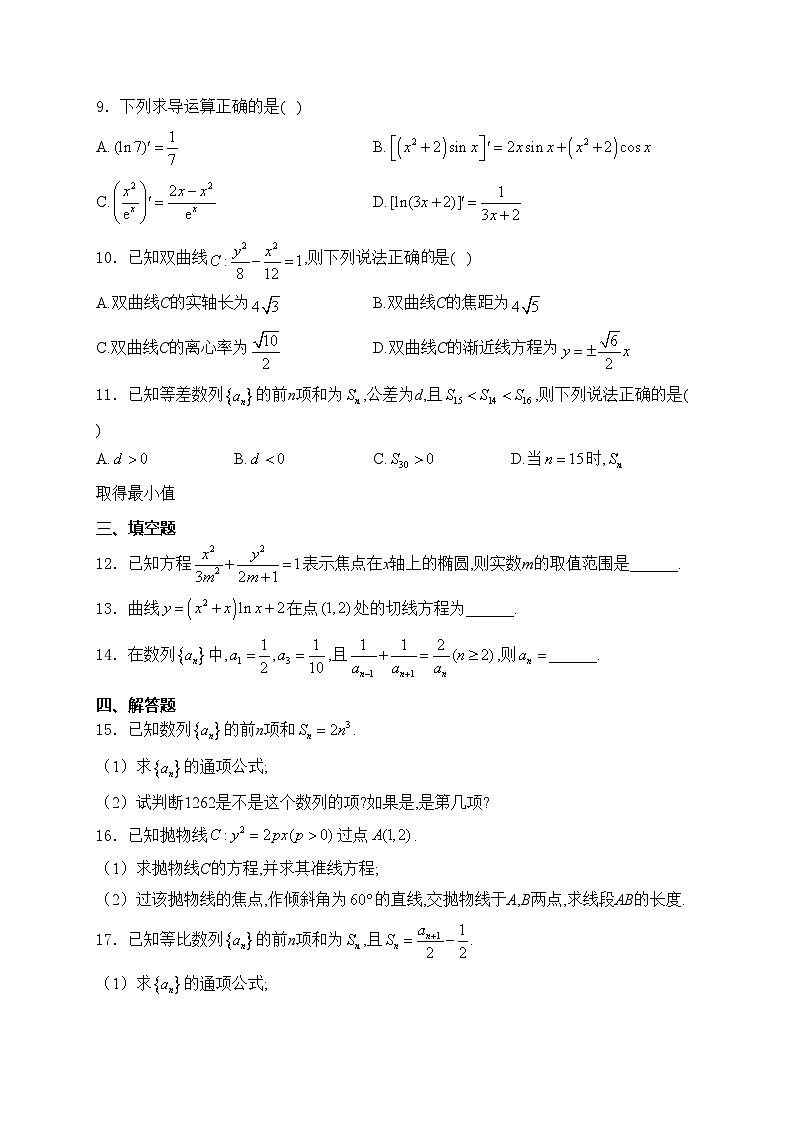 9．下列求导运算正确的是( )
A. (ln 7)′ = 1/7 B. [(x² + 2)sin x]′ = 2x sin x + (x² + 2)cos x
C. (x²/eˣ)′ = (2x − x²)/eˣ D. [ln(3x + 2)]′ = 1/(3x + 2)
10．已知双曲线 C : y²/8 − x²/12 = 1 ,则下列说法正确的是( )
A.双曲线C的实轴长为 4√3 B.双曲线C的焦距为 4√5
C.双曲线C的离心率为 √10/2 D.双曲线C的渐近线方程为 y = ±(√6/2)x
11．已知等差数列 {aₙ} 的前n项和为 Sₙ ,公差为d,且 S₁₅ < S₁₄ < S₁₆ ,则下列说法正确的是(
)
A. d > 0 B. d < 0 C. S₃₀ > 0 D.当 n = 15 时, Sₙ
取得最小值
三、填空题
12．已知方程 x²/(3m²) + y²/(2m + 1) = 1 表示焦点在x轴上的椭圆,则实数m的取值范围是______.
13．曲线 y = (x² + x)ln x + 2 在点 (1, 2) 处的切线方程为______.
14．在数列 {aₙ} 中, a₁ = 1/2 , a₃ = 1/10 ,且 1/aₙ₋₁ + 1/aₙ₊₁ = 2/aₙ (n ≥ 2) ,则 aₙ = ______.
四、解答题
15．已知数列 {aₙ} 的前n项和 Sₙ = 2n³ .
（1）求 {aₙ} 的通项公式;
（2）试判断1262是不是这个数列的项?如果是,是第几项?
16．已知抛物线 C : y² = 2px(p > 0) 过点 A(1, 2) .
（1）求抛物线C的方程,并求其准线方程;
（2）过该抛物线的焦点,作倾斜角为 60° 的直线,交抛物线于A,B两点,求线段AB的长度.
17．已知等比数列 {aₙ} 的前n项和为 Sₙ ,且 Sₙ = aₙ₊₁/2 − 1/2 .
（1）求 {aₙ} 的通项公式;